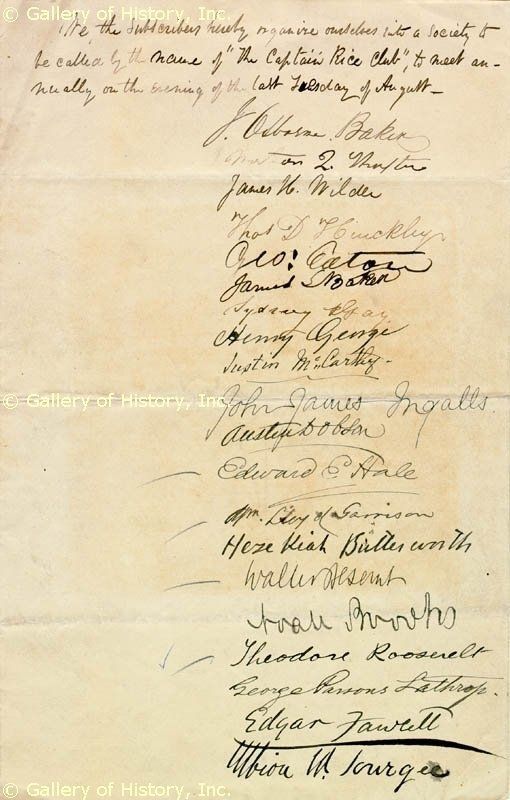 © Gallery of History, Inc.
© Gallery of History, Inc.
We, the subscribers hereby organize ourselves into a society to
be called by the name of "The Captain Rice Club", to meet an-
nually on the evening of the last Tuesday of August—
J. Osborne Baker
Q. Thaxter
James H. Wilder
Thos D Hinckley
Geo: Eaton
James S Baker
Sydney Gay
Henry George
Justin McCarthy
© Gallery of History, Inc.
© Gallery of History, Inc.
John James Ingalls.
Austin Dobson
Edward E. Hale
Wm. Lloyd Garrison
Hezekiah Butterworth
Walter Besant
Noah Brooks
Theodore Roosevelt
George Parsons Lathrop.
Edgar Fawcett
Albion W. Tourgee
© Gallery of History, Inc.
© Gallery of History, Inc.